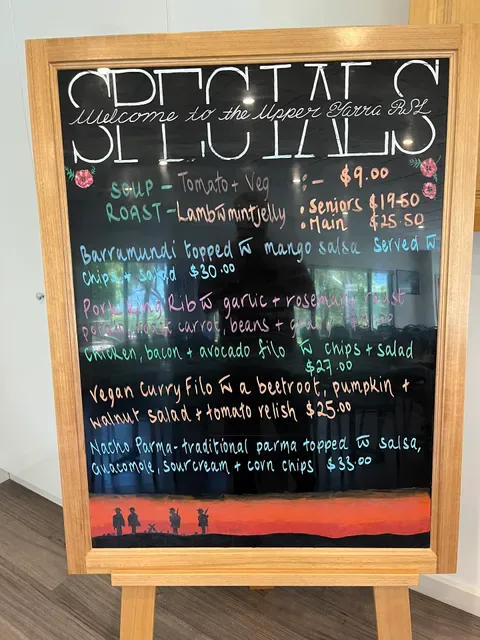 SPECIALS
Welcome to the Upper Yarra RSL
SOUP - Tomato + Veg :- $9.00
ROAST - Lamb w mintjelly • Seniors $19.50
• Main $25.50
Barramundi topped w mango salsa served w
chips + salad $30.00
Pork King Rib w garlic + rosemary roast
carrot, beans +
Chicken, bacon + avocado filo w chips + salad
$27.00
Vegan Curry Filo w a beetroot, pumpkin +
walnut salad + tomato relish $25.00
Nacho Parma - traditional parma topped w salsa,
guacomole, sourcream + corn chips $33.00